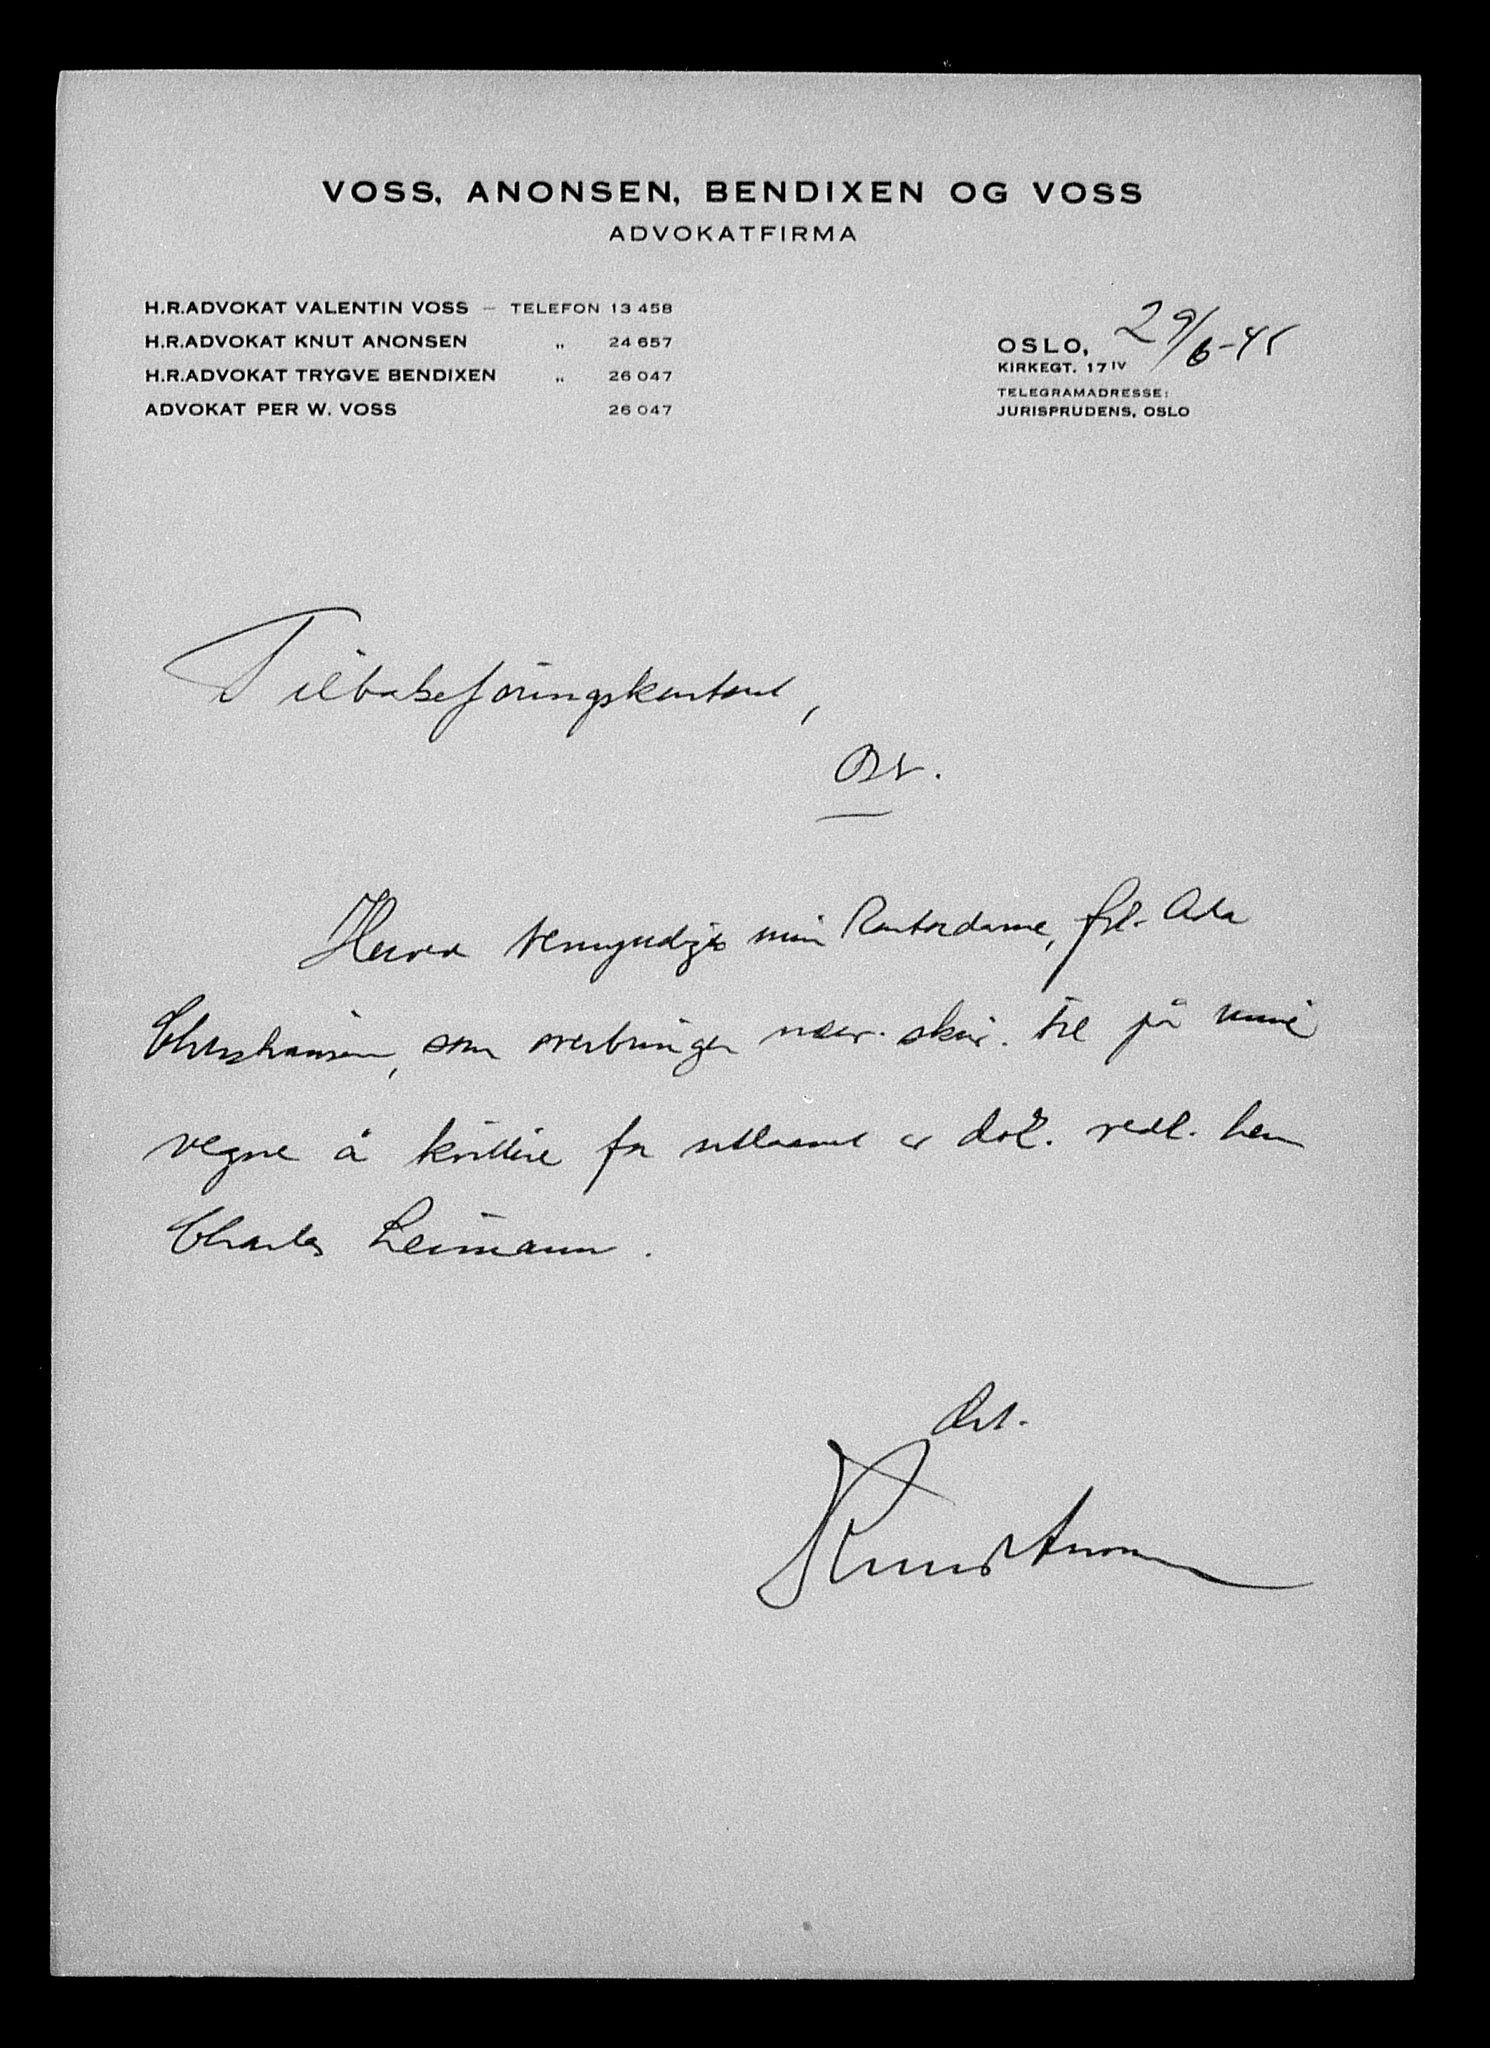 VOSS, ANONSEN, BENDIXEN OG VOSS
ADVOKATFIRMA
H.R.ADVOKAT VALENTIN VOSS — TELEFON 13 458
H.R.ADVOKAT KNUT ANONSEN „ 24 657
H.R.ADVOKAT TRYGVE BENDIXEN „ 26 047
ADVOKAT PER W. VOSS 26 047
OSLO, 29/6-45
KIRKEGT. 17 IV
TELEGRAMADRESSE:
JURISPRUDENS, OSLO
Tilbakeføringskontoret,
Herved bemyndiges min Kontordame, frk. Ada
Christiansen, som overbringer nær. skriv. til på mine
vegne å kvittere for utlevert av dok. vedr. herr
Charles Leimann.
Knut Anonsen